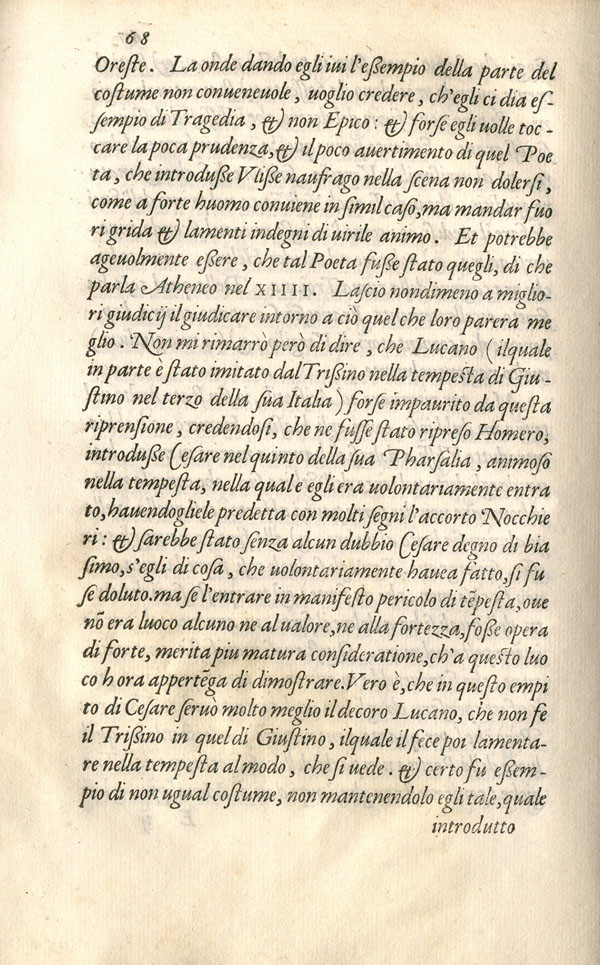 68
Oreste. La onde dando egli iui l'eßempio della parte del
costume non conueneuole, uoglio credere, ch'egli ci dia es-
sempio di Tragedia, & non Epico: & forse egli uolle toc-
care la poca prudenza, & il poco auertimento di quel Poe
ta, che introduße Vliße naufrago nella scena non dolersi,
come a forte huomo conuiene in simil caso, ma mandar fuo
ri grida & lamenti indegni di uirile animo. Et potrebbe
ageuolmente eßere, che tal Poeta fuße stato quegli, di che
parla Atheneo nel XIIII. Lascio nondimeno a miglio-
ri giudicij il giudicare intorno a ciò quel che loro parera me
glio. Non mi rimarrò però di dire, che Lucano (ilquale
in parte è stato imitato dal Trißino nella tempesta di Giu-
stino nel terzo della sua Italia) forse impaurito da questa
riprensione, credendosi, che ne fusse stato ripreso Homero,
introduße Cesare nel quinto della sua Pharsalia, animoso
nella tempesta, nella quale egli era uolontariamente entra
to, hauendogliele predetta con molti segni l'accorto Nocchie
ri: & sarebbe stato senza alcun dubbio Cesare degno di bia
simo, s'egli di cosa, che uolontariamente hauea fatto, si fu
se doluto. ma se l'entrare in manifesto pericolo di tẽpesta, oue
nõ era luoco alcuno ne al ualore, ne alla fortezza, foße opera
di forte, merita piu matura consideratione, ch'a questo luo
co hora appertẽga di dimostrare. Vero è, che in questo empi
to di Cesare seruò molto meglio il decoro Lucano, che non fe
il Trißino in quel di Giustino, ilquale il fece poi lamenta-
re nella tempesta al modo, che si uede. & certo fu eßem-
pio di non ugual costume, non mantenendolo egli tale, quale
introdutto